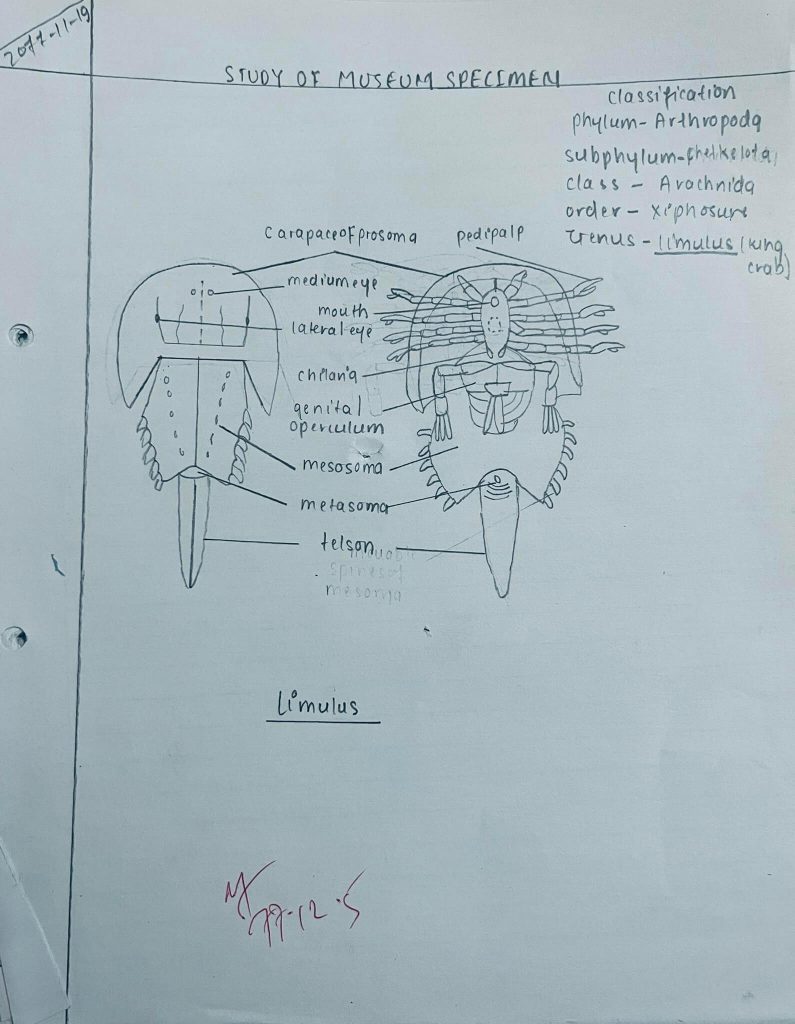 2077-11-19
STUDY OF MUSEUM SPECIMEN
classification
phylum - Arthropoda
subphylum - chelikelota
class - Arachnida
order - xiphosure
Genus - limulus (king
crab)
carapace of prosoma
pedipalp
medium eye
mouth
lateral eye
chilaria
genital
operculum
mesosoma
metasoma
telson
spines of
mesoma
Limulus
77.12.5